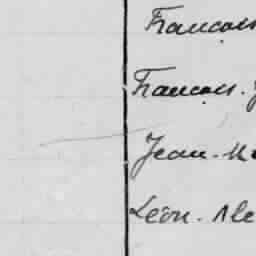 Francois
Francois. J
Jean. M
Léon. Ale